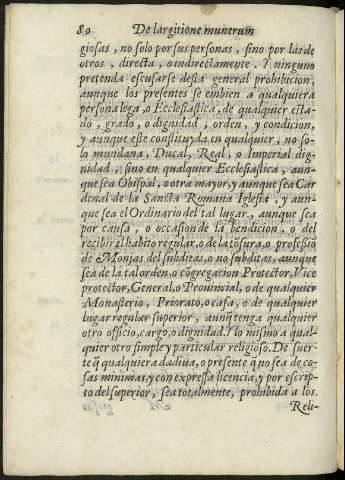 80 De largitione munerum
giosas, no solo por sus personas, sino por las de
otros, directa, o indirectamente. Y ninguno
pretenda escusarse desta general prohibicion,
aunque los presentes se embien a qualquiera
persona lega, o Ecclesiastica, de qualquier esta-
do, grado, o dignidad, orden, y condicion,
y aunque este constituyda en qualquier, no so-
lo mundana, Ducal, Real, o Imperial dig-
nidad, sino en qualquier Ecclesiastica, aun-
que sea Obispal, o otra mayor, y aunque sea Car
denal de la Sancta Romana Iglesia, y aun-
que sea el Ordinario del tal lugar, aunque sea
por causa, o occasion de la bendicion, o del
recibir el habito regular, o de la tōsura, o professiō
de Monjas del subditas, o no subditas, aunque
sea de la tal orden, o cōgregacion Protector, Vice
protector, General, o Provincial, o de qualquier
Monasterio, Priorato, o casa, o de qualquier
lugar regular superior, aunq̃ tenga qualquier
otro officio, cargo, o dignidad. Y lo mismo a qual-
quier otro simple y particular religioso. De suer-
te q̃ qualquiera dadiua, o presente q̃ no sea de co-
sas minimas, y con expressa licencia, y por escrip-
to del superior, sea totalmente, prohibida a los
Reli-